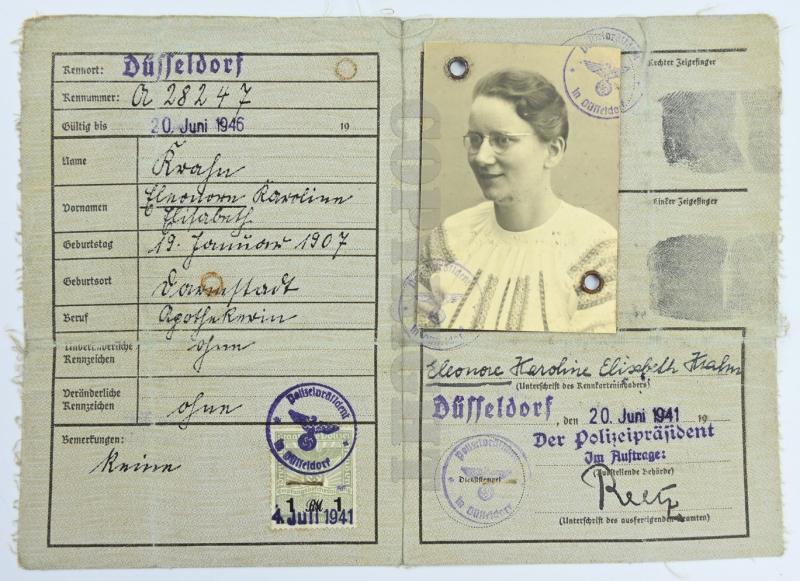 Kennort: Düsseldorf
Kennnummer: A 28247
Gültig bis 20. Juni 1946 19
Name Krahn
Vornamen Eleonore Karoline
Elisabeth
Geburtstag 19. Januar 1907
Geburtsort Darmstadt
Beruf Apothekerin
Unveränderliche
Kennzeichen ohne
Veränderliche
Kennzeichen ohne
Bemerkungen:
keine
Polizeipräsident
in Düsseldorf
1 RM 1
4. Juli 1941
Polizeipräsident
in Düsseldorf
Rechter Zeigefinger
Linker Zeigefinger
Eleonore Karoline Elisabeth Krahn
(Unterschrift des Kennkarteninhabers)
Düsseldorf, den 20. Juni 1941 19
Der Polizeipräsident
Im Auftrage:
(Ausstellende Behörde)
Polizeipräsident
Dienststempel
in Düsseldorf
(Unterschrift des ausfertigenden Beamten)